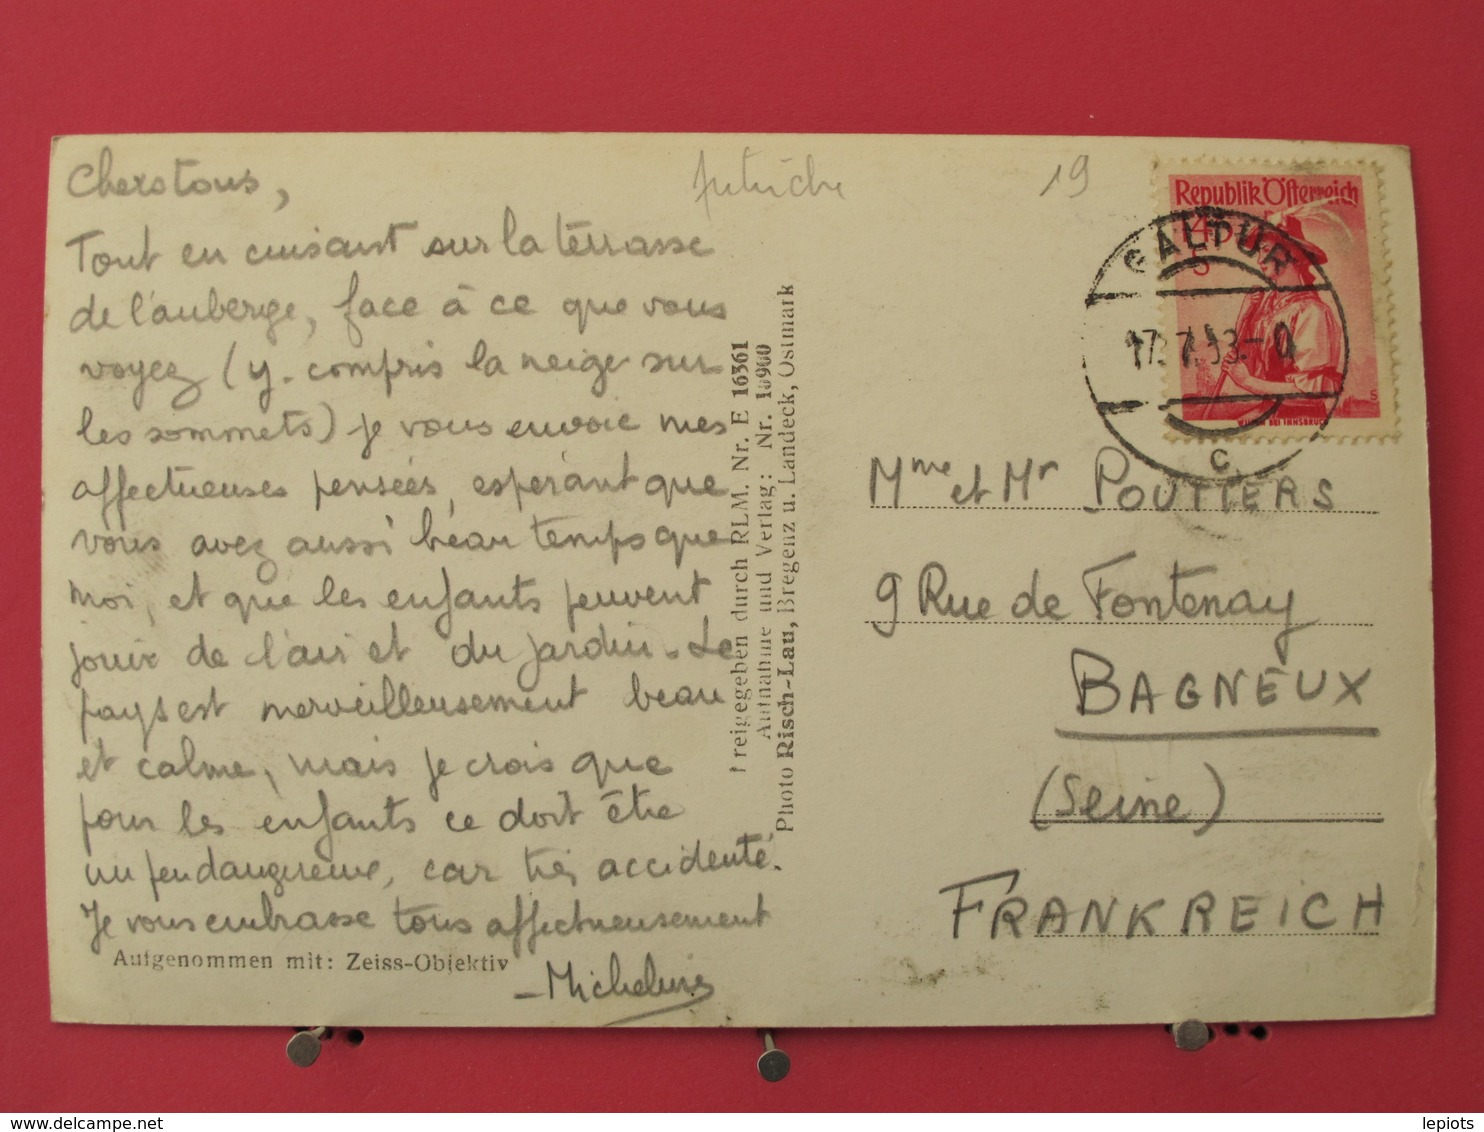 Chers tous,
Tout en cuisant sur la terrasse
de l'auberge, face à ce que vous
voyez (y. compris la neige sur
les sommets) je vous envoie mes
affectueuses pensées, espérant que
vous avez aussi beau temps que
moi, et que les enfants peuvent
jouir de l'air et du jardin. Le
pays est merveilleusement beau
et calme, mais je crois que
pour les enfants ce doit être
un peu dangereux, car très accidenté.
Je vous embrasse tous affectueusement
Aufgenommen mit: Zeiss-Objektiv
- Micheline
Freigegeben durch RLM. Nr. E 16361
Aufnahme und Verlag: Nr. 10900
Photo Risch-Lau, Bregenz u. Landeck, Ostmark
Autriche
19
Republik Österreich
45
S
WILTEN BEI INNSBRUCK
S
GALTÜR
17. 7. 53. - 0
C
Mme et Mr POUTIERS
9 Rue de Fontenay
BAGNEUX
(Seine)
FRANKREICH
lepiots